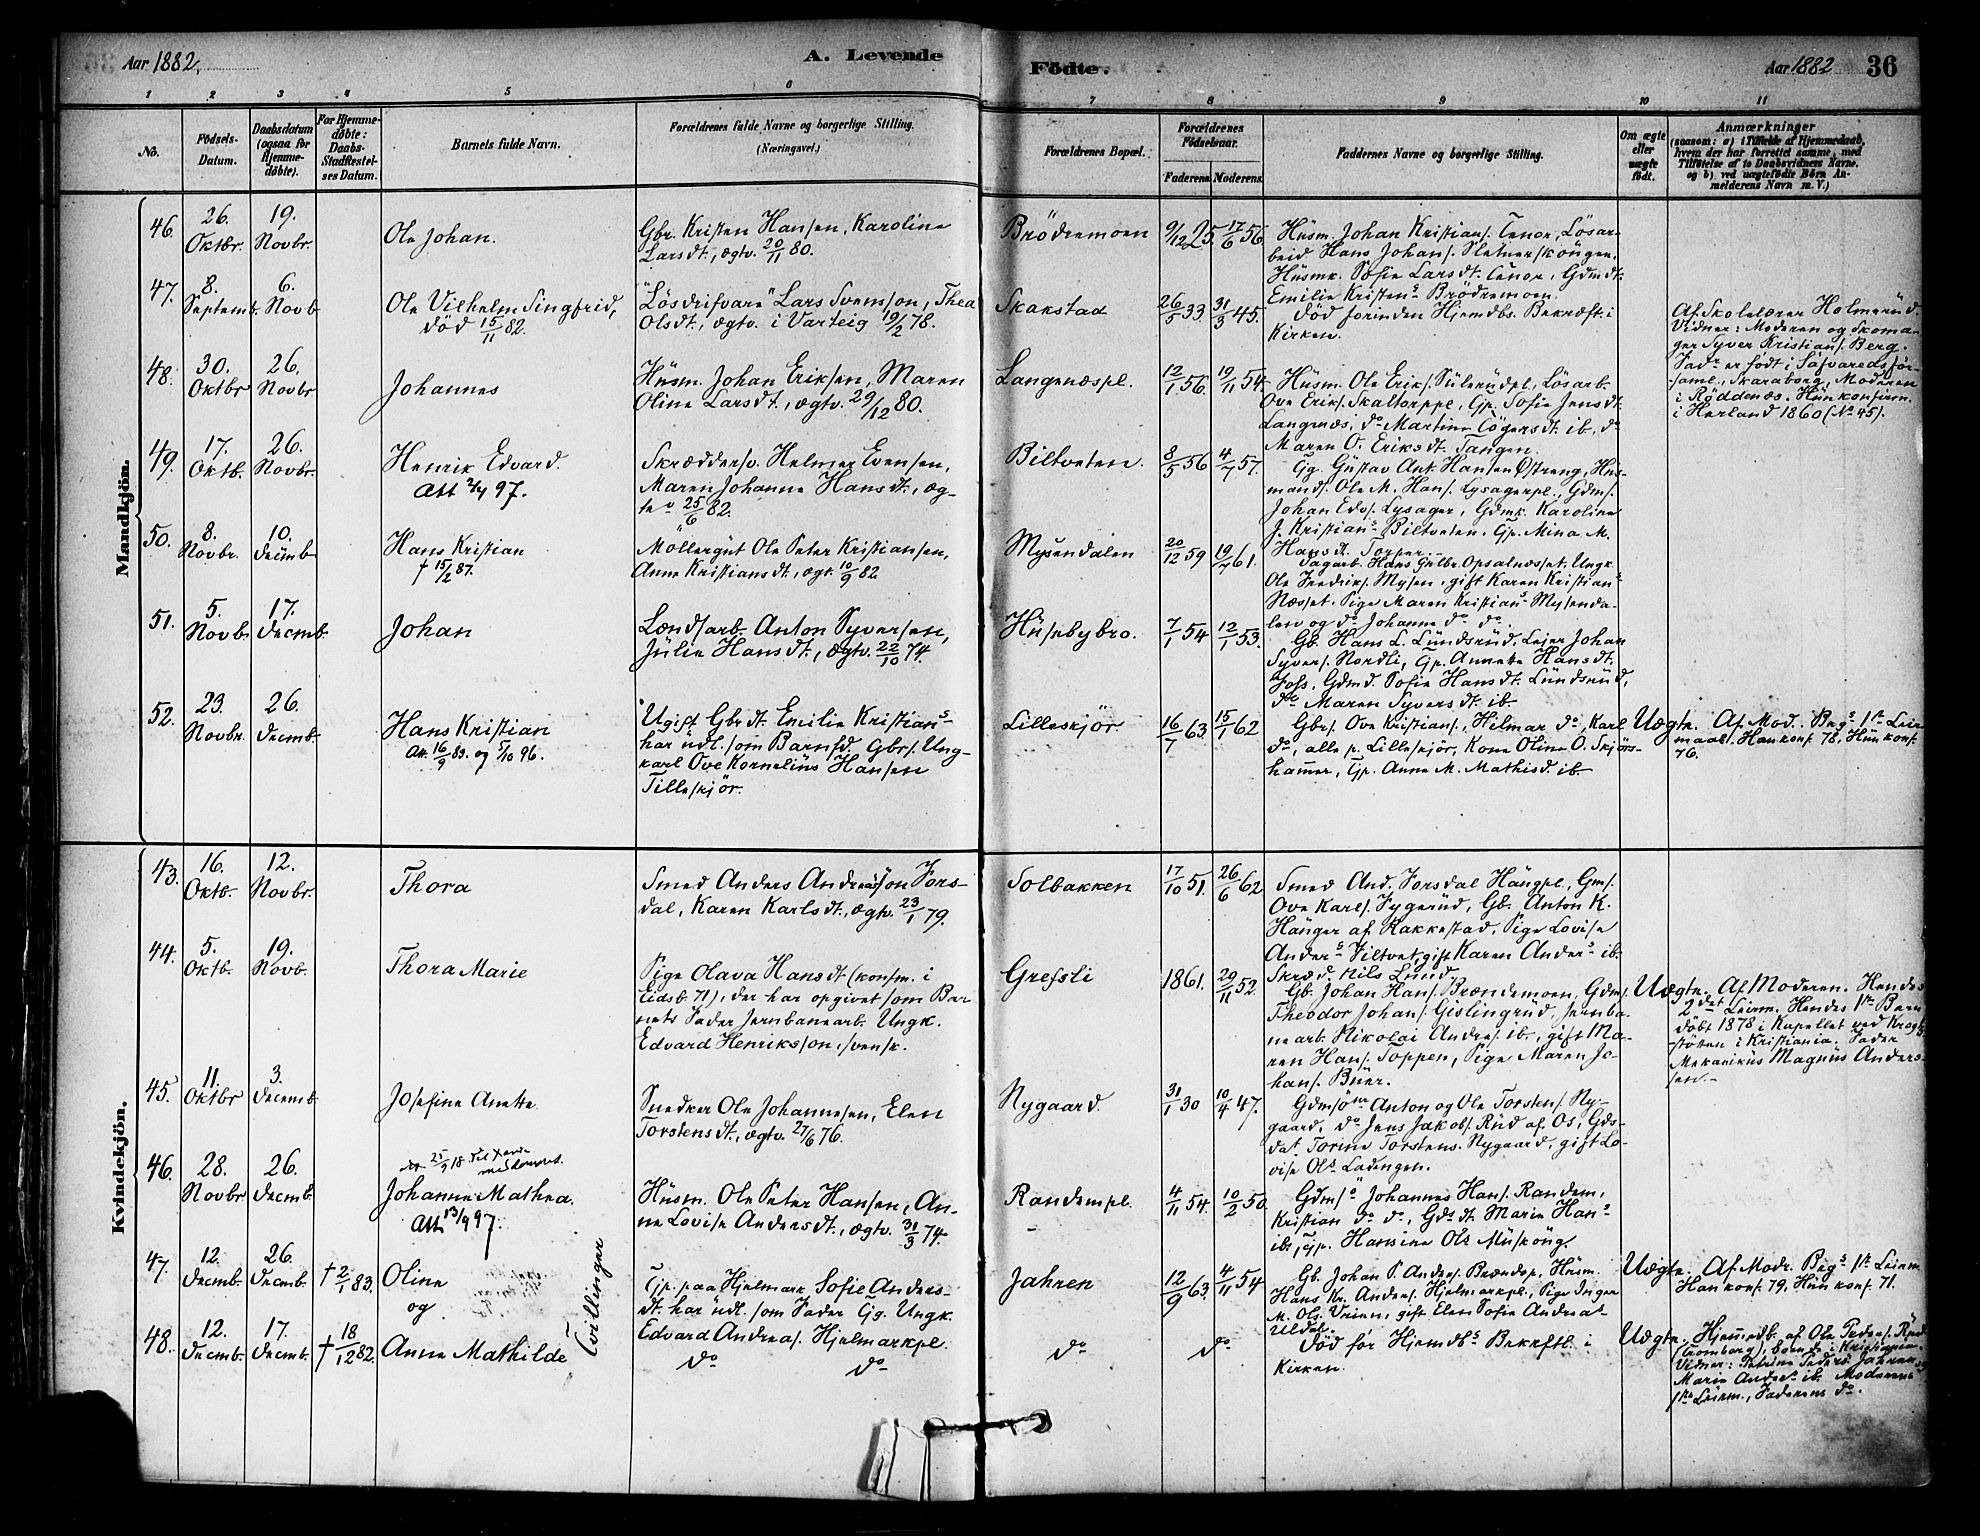 Aar 1882.
A. Levende
Födte.
Aar 1882
36
1 2 3 4 5 6 7 8 9 10 11
No.
Födsels-
Datum.
Daabsdatum
(ogsaa for
Hjemme-
döbte).
For Hjemme-
döbte:
Daabs-
Stadfæstel-
ses Datum.
Barnets fulde Navn.
Forældrenes fulde Navne og borgerlige Stilling.
(Næringsvei.)
Forældrenes Bopæl.
Forældrenes
Födselsaar.
Faderens. Moderens.
Faddernes Navne og borgerlige Stilling.
Om ægte
eller
uægte
födt.
Anmærkninger
(saasom: a) i Tilfælde af Hjemmedaab,
hvem der har forrettet samme, med
Tilföielse af to Daabsvidners Navne.
og b) ved uægtefödte Börn An-
melderens Navn m. V.)
Mandkjön.
46.
26.
Oktbr.
19.
Novbr.
Ole Johan.
Gbr. Kristen Hansen, Karoline
Larsdt., ægtv. 20/11 80.
Brödremoen
9/12 25.
17/6 56
Husm. Johan Kristians. Tenor, Lösar-
beid Hans Johans. Sletner/köngen.
Husmk. Sofie Larsdt. Tenor, Gdmdt.
Emilie Kristens. Brödremoen.
47.
8.
Septemb.
6.
Novb.
Ole Vilhelm Singfrid,
död 15/11 82.
"Lösdrifvare" Lars Svensson, Thea
Olsdt., ægtv. i Varteig 19/2 78.
Skakstad
26/5 33.
31/3 45.
Död forinden Hjemdbs. Bekræft. i
Kirken.
Af Skolelærer Holmerud.
Vidner: Moderen og Skoma-
ger Syver Kristians. Berg.
Fadr er födt i Säfvareds för-
saml., Skaraborg, Moderen
i Röddenæs. Hun konfirm.
i Herland 1860 (No 45).
48.
30.
Oktbr
26.
Novbr
Johannes
Husm. Johan Eriksen, Maren
Oline Larsdt., ægtv. 29/12 80.
Langenæspl.
12/1 56.
19/11 54.
Husm. Ole Eriks. Sulerudpl., Lösarb.
Ove Eriks. Skaltorppl., Gp. Sofie Jensdt.
Langnæs, do Martine Tögersdt. ib., do
Maren O. Eriksdt. Tangen.
49.
17.
Oktb.
26.
Novbr.
Henrik Edvard.
Att 2/4 97.
Skræddersv. Helmer Evensen,
Maren Johanne Hansdt., æg-
tv 25/6 82.
Biltveten.
8/5 56
4/7 57.
Gg. Gustav Ant. Hansen Östreng, Hus-
mands. Ole M. Hans. Lysagerpl., Gdms.
Johan Edvs. Lysager, Gdmk. Karoline
J. Kristians Biltveten, Gp. Mina M.
Hansdt. Torper.
50.
8.
Novbr.
10.
Decemb
Hans Kristian
† 15/2 87.
Möllergut Ole Peter Kristiansen,
Anne Kristiansdt., ægt. 10/9 82
Mysendalen
20/12 59
19/7 61.
Dagarb. Hans Gulbr. Opsalnæsset, Ungk.
Ole Fredriks. Mysen, gift Karen Kristians
Næsset, Pige Maren Kristians Mysenda-
len og do Johanne do do.
51.
5.
Novb.
17.
Decmb.
Johan
Lændsarb. Anton Syversen,
Julie Hansdt., ægtv. 22/10 74.
Husebybro.
7/1 54
12/1 53.
Gb. Hans L. Lundsrud, Leier Johan
Syvers. Nordli, Gp. Annette Hansdt.
Foss, Gdmd. Sofie Hansdt. Lundsrud,
do Maren Syversdt. ib.
52.
23.
Novbr.
26.
Decmb.
Hans Kristian
Att. 16/9 89. og 5/10 96.
Ugift Gbrdt. Emilie Kristians
har udl. som Barnfd. Gbrs. Ung-
karl Ove Kornelius Hansen
Lilleskjör.
Lilleskjör
16/7 63
15/1 62
Gbrs. Ove Kristians., Hilmar do, Karl
do, alle p. Lilleskjör, Kone Oline O. Skjörs-
hamer, Gp. Anne M. Mathisd. ib.
Uægte.
Af Mod. Begs 1ste Leier-
maal. Han konf. 78, Hun konf.
76.
Kvindekjön.
43.
16.
Oktb.
12.
Novbr.
Thora
Smed Anders Andreasson Fors-
dal, Karen Karlsdt., ægtv. 23/1 79.
Solbakken
17/10 51.
26/6 62
Smed And. Forsdal Hängpl., Gms.
Ove Karls. Fygerud, Gb. Anton K.
Hänger af Rakkestad, Pige Lovise
Anders Viltvet, gift Karen Anders ib.
Skræd. Nils Lund.
44.
5.
Oktb.
19.
Novb.
Thora Marie
Pige Olava Hansdt (konfm. i
Eidsb. 71), der har opgivet som Bar
nets Fader Jernbanearb. Ungk.
Edvard Henriksson, svensk.
Grefsli
1861.
29/11 52.
Gb. Johan Hans. Brændemoen, Gdms.
Theodor Johans. Gislingrud, Jernba-
nearb. Nikolai Andres. ib., gift Ma-
ren Hans. Toppen, Pige Maren Jo-
hans. Buer.
Uægte.
Af Moderen. Hendes
2det Leierm. Hendes 1ste Barn
döbt 1878 i Kapellet ved Krogh-
stötten i Kristiania. Fader
Mekanikus Magnus Anders-
sen.
45.
11.
Oktbr
3.
Decemb.
Josefine Anette
Snedker Ole Johannesen, Elen
Torstensdt., ægtv. 27/6 76.
Nygaard.
31/1 30
10/4 47.
Gdmsönr Anton og Ole Torstens. Ny-
gaard, do Jens Jakobs. Rud af Os, Gds-
dat Torine Torstens. Nygaard, gift Lo-
vise Ols Ladengen.
46.
28.
Novbr
26.
Decmb.
Johanne Mathea.
Att 13/9 97.
Husm. Ole Peter Hansen, An-
ne Lovise Andersdt., ægtv. 31/3 74.
Randempl.
4/11 54.
10/2 50.
Gdms. Johannes Hans. Randem,
Kristian do do, Gdsdt. Marie Hans
ib., Gp. Hansine Ols Musköng.
47.
12.
Decmb.
26.
Decmb.
† 2/1 83.
Oline
og
Tvillinger
Gp. paa Hjelmark Sofie Anders-
dt. har udl. som Fader Gg. Ungk.
Edvard Andreas. Hjelmarkpl.
Jahren
12/9 63.
4/11 54
Gb. Johan P. Anders. Brændsp., Husm.
Hans Kr. Anders. Hjelmarkpl., Pige Inger
M. Ols. Vrien, gift Elen Sofie Andreas
Uldal.
Uægte.
Af Modr. Begs 1ste Leierm.
Han konf. 79, Hun konf. 71.
48.
12.
Decmb.
17.
Decmb.
† 18/12 82.
Anne Mathilde
do do
do
do
Död för Hjemdbs Bekræftl. i
Kirken.
Uægte.
Hjemmedb. af Ole Peders. Rud
(Tromborg), boende i Kristiania.
Vidner: Petrine Peders Jahren,
Marie Anders ib. Moderens
1ste Leierm., Faderens do.